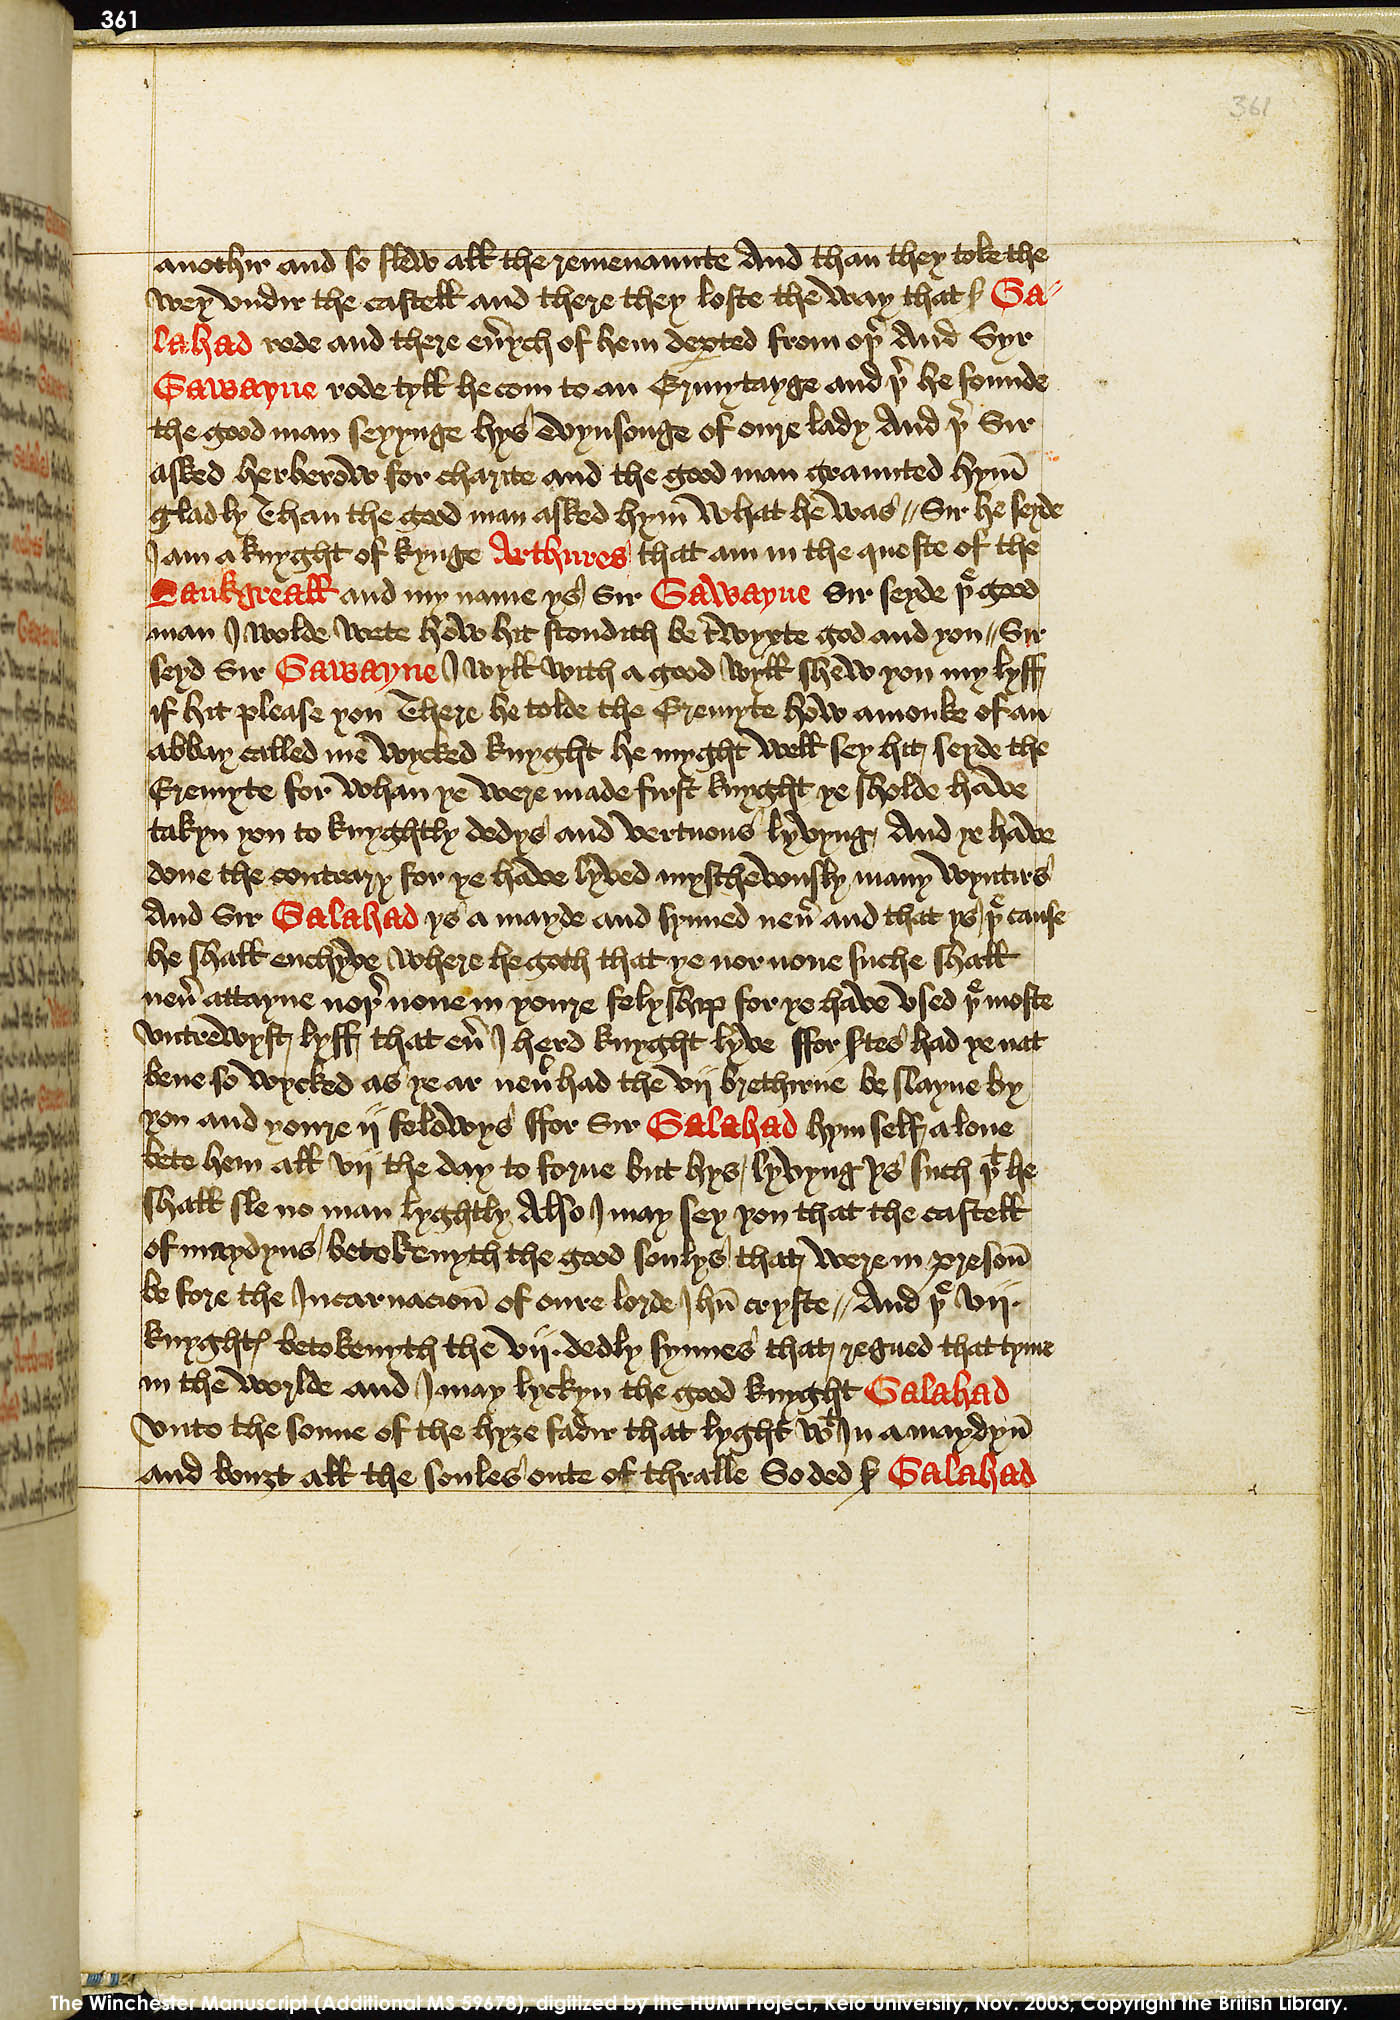 361
361
anothir and so slew all the remenaunte And than they toke the
wey vndir the castell and there they loste the way that sʳ Ga-
lahad rode and there eu̾ych of hem dep̱ted from oþ̾ And Syr
Gawayne rode tyll he com to an Ermytayge and þ̾ he founde
the good man seyynge hys Evynsonge of oure lady And þ̾ Sir
asked herberow for charite and the good man graunted hym̄
gladly Than the good man asked hym̄ what he was // Sir he seyde
I am a knyght of kynge Arthures that am in the queste of the
Sankgreall and my name ys Sir Gawayne Sir seyde þᵉ good
man I wolde wete how hit stondith be twyxte god and you // Sir
seyd Sir Gawayne I wyll with a good wyll shew you my lyff
if hit please you There he tolde the Eremyte how a monke of an
abbay called me wycked knyght he myght well sey hit seyde the
Eremyte for whan ye were made first knyght ye sholde have
takyn you to knyghtly dedys and vertuous lyvyng And ye have
done the contrary for ye have lyved myschevously many wyntirs
And Sir Galahad ys a mayde and synned neu̾ and that ys þᵉ cause
he shall enchyve where he goth that ye nor none suche shall
neu̾ attayne noþ̾ none in youre felyship for ye have vsed þᵉ moste
vntrewyst lyff that eu̾ I herd knyght lyve ffor s̾tes had ye nat
bene so wycked as ye ar neu̾ had the vij brethirne be slayne by
you and youre ij felowys ffor Sir Galahad hym self alone
bete hem all vij the day to forne but hys lyvyng ys such þᵗ he
shall sle no man lyghtly Also I may sey you that the castell
of maydyns betokenyth the good soulys that were in preson̄
be fore the Incarnacion̄ of oure lorde Jhū cryste // And þᵉ vij·
knyghtꝭ betokenyth the vij· dedly synnes that regned that tyme
in the worlde and I may lyckyn the good knyght Galahad
vnto the sonne of the hyȝe fadir that lyght wᵗ In a maydyn̄
and bouȝt all the soules oute of thralle So ded sʳ Galahad
The Winchester Manuscript (Additional MS 59678), digitized by the HUMI Project, Keio University, Nov. 2003, Copyright the British Library.